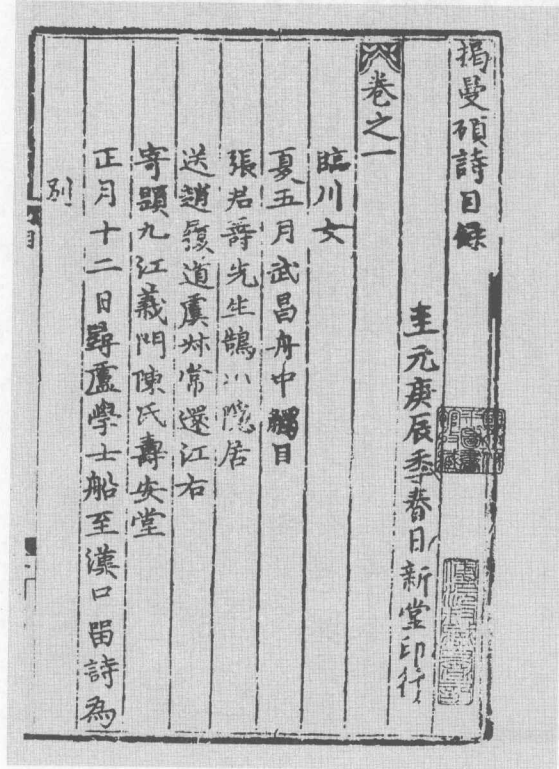 揭曼碩詩目錄
至元庚辰季春日新堂印行
卷之一
臨川女
夏五月武昌舟中觸目
張君壽先生鵠隱居
送趙履道虞叔常還江右
寄題九江義門陳氏壽安堂
正月十二日尋盧學士船至漢口畱詩為
别
目